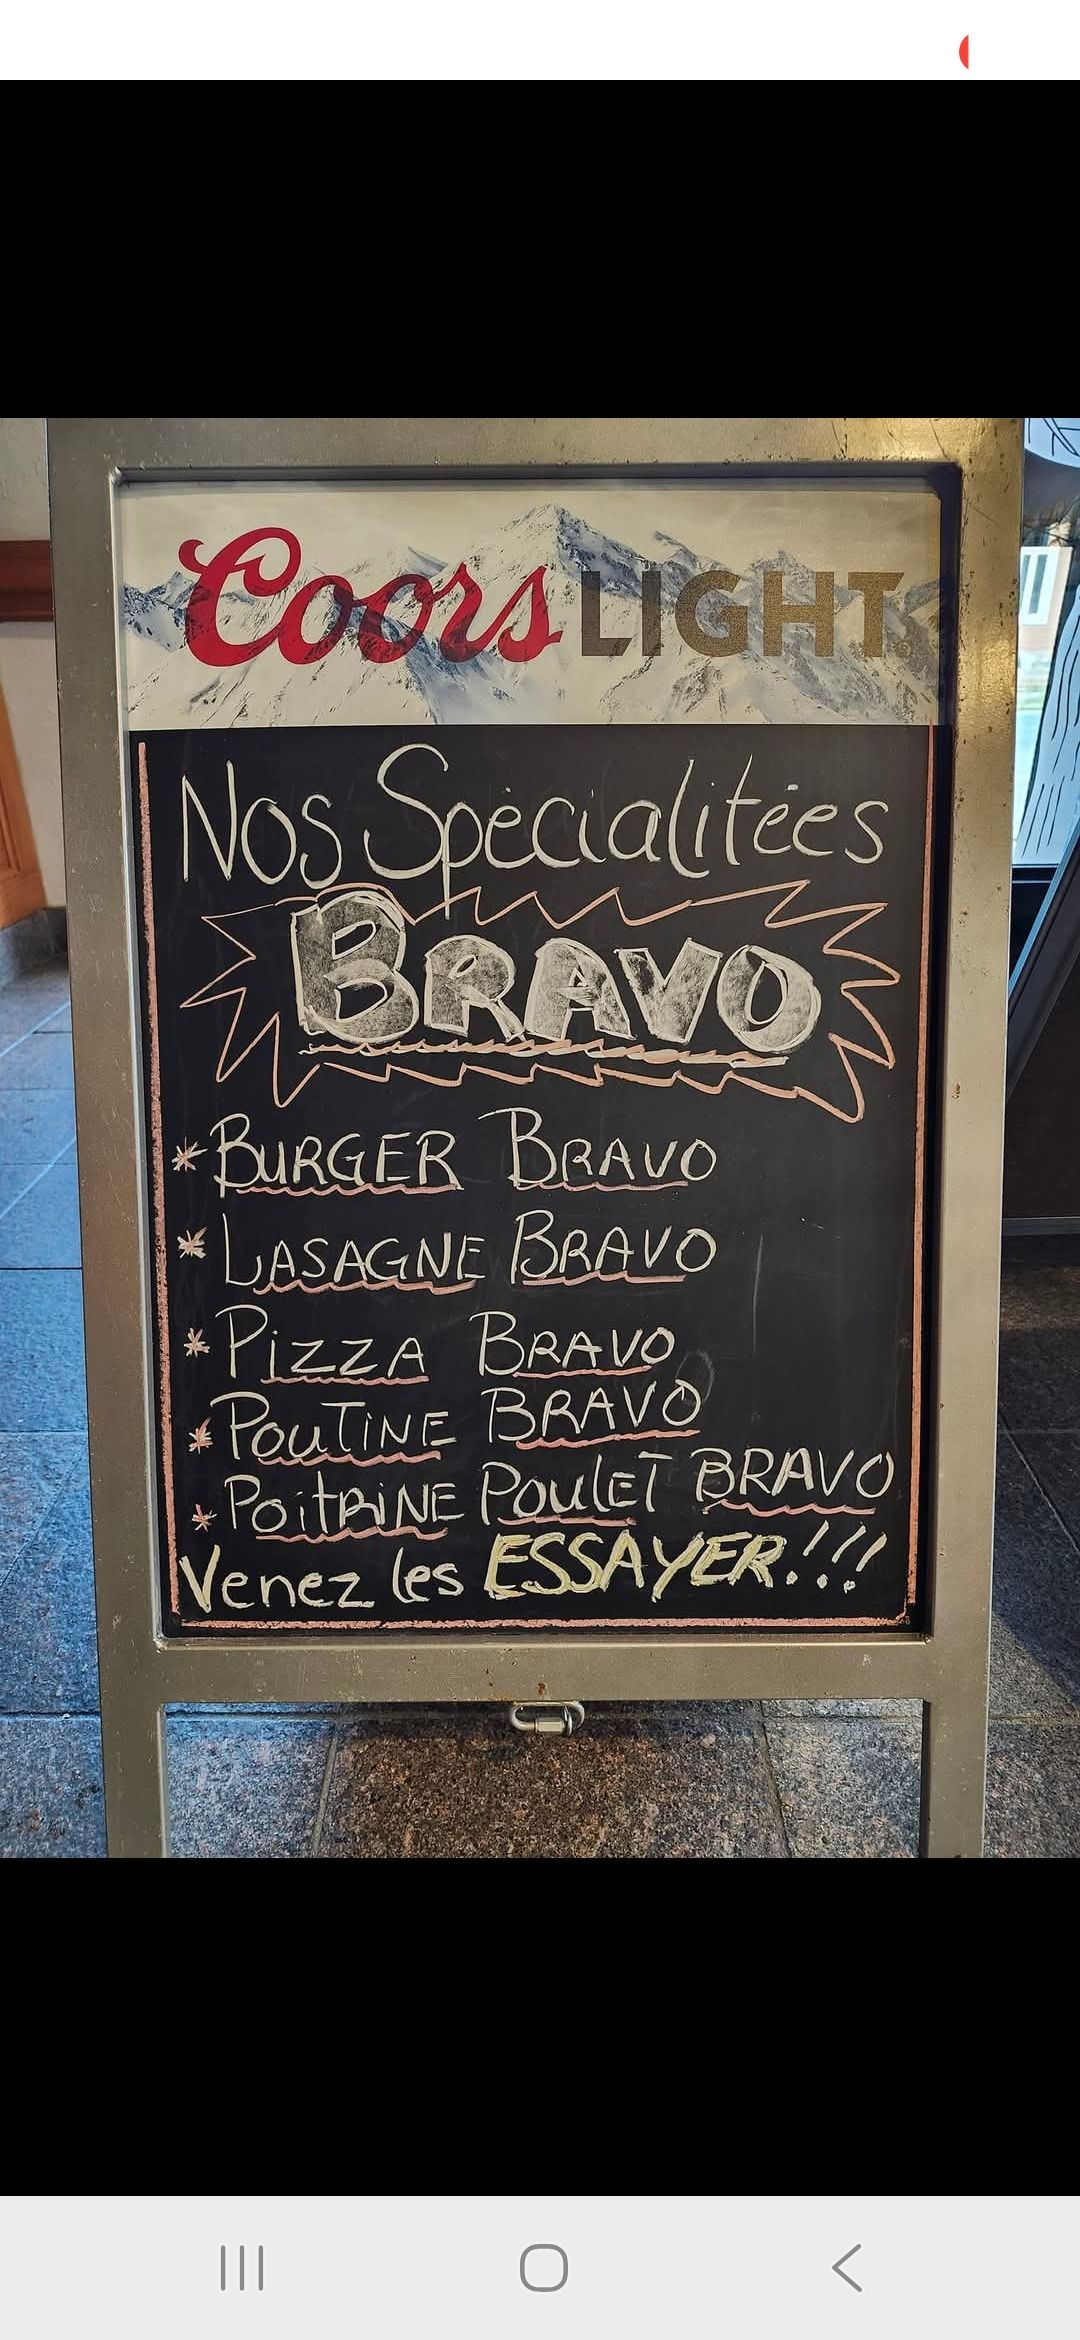 Coors LIGHT
Nos Spécialitées
BRAVO
* BURGER BRAVO
* LASAGNE BRAVO
* PiZZA BRAVO
* POUTiNE BRAVO
* POitRiNE POULET BRAVO
Venez les ESSAYER!!!